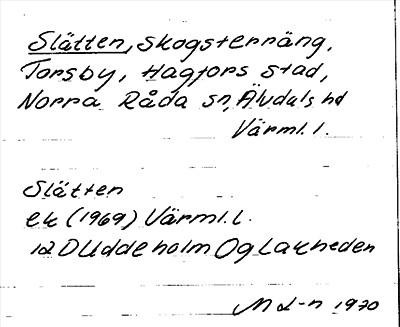 Slätten, skogsterräng,
Torsby, Hagfors stad,
Norra Råda sn, Älvdals hd
Värml. l.
Slätten
ek (1969) Värml. l.
12D Uddeholm Og Lakheden
M L-n 1970